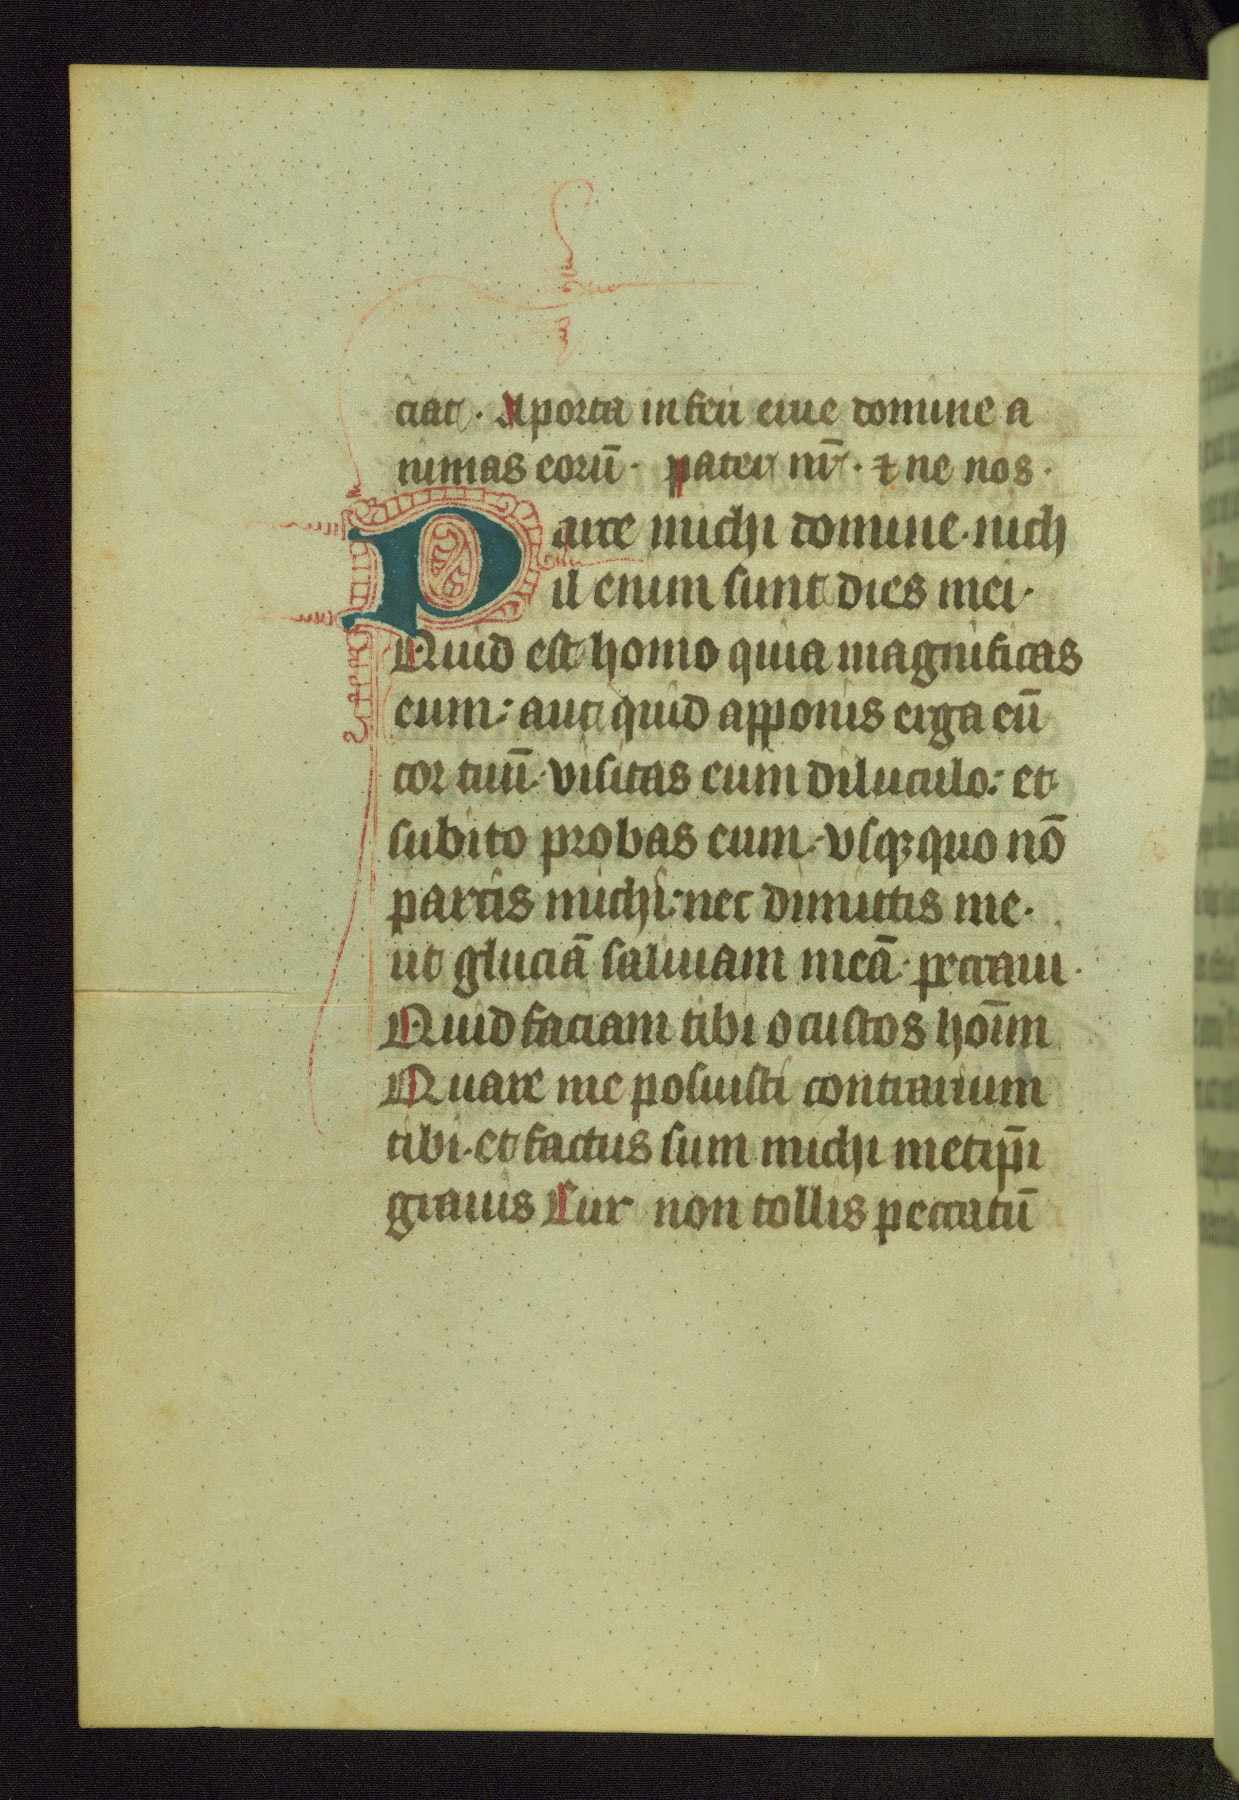 ciat. A porta inferi erue domine a
nimas eorū. pater nr̄. ⁊ ne nos.
Parce michi domine. nich
il enim sunt dies mei.
Quid est homo quia magnificas
eum: aut quid apponis erga eū
cor tuū. visitas eum diluculo: et
subito probas eum. vsqꝫquo nō
parcis michi: nec dimittis me.
ut gluciā saliuam meā. peccaui.
Quid faciam tibi o custos hoīm
Quare me posuisti contrarium
tibi. et factus sum michi metip̄i
grauis Cur non tollis peccatū